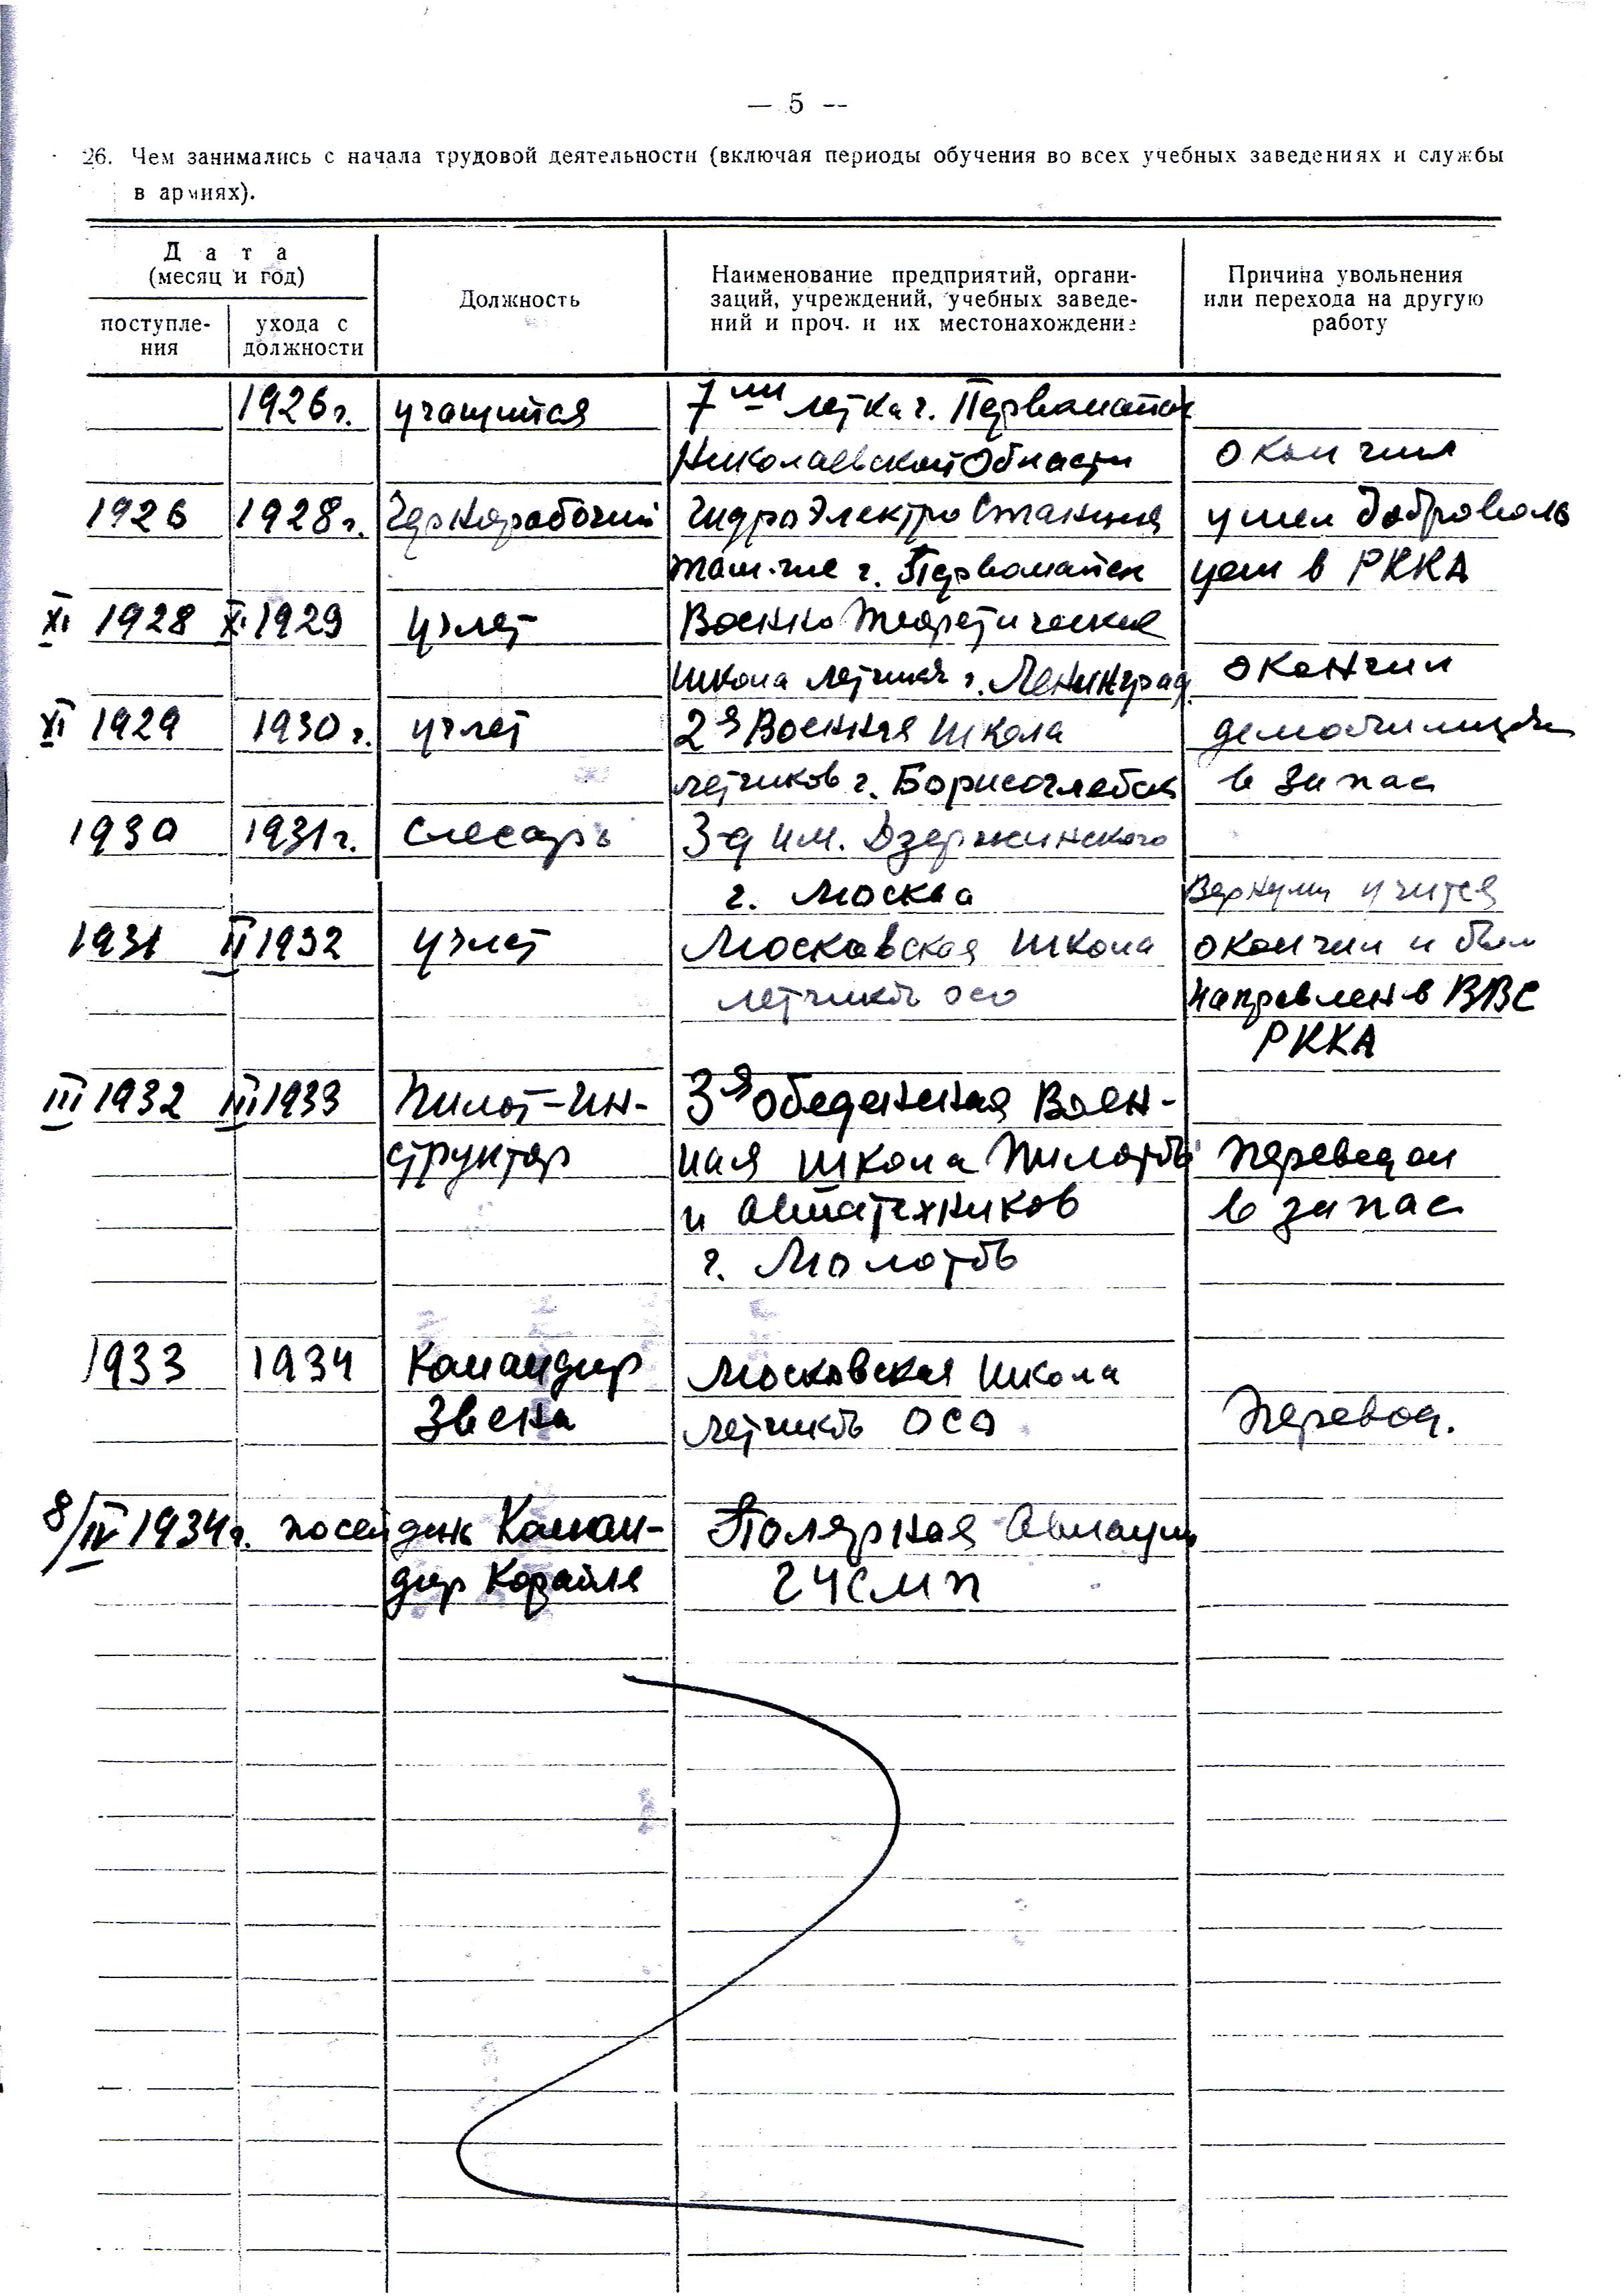 — 5 —
26. Чем занимались с начала трудовой деятельности (включая периоды обучения во всех учебных заведениях и службы
в армиях).
Дата
(месяц и год)
поступле-
ния
ухода с
должности
Должность
Наименование предприятий, органи-
заций, учреждений, учебных заведе-
ний и проч. и их местонахождение
Причина увольнения
или перехода на другую
работу
1926 г. учащийся 7ми летка г. Первомайск
Николаевской Области окончил
1926 1928 г. Чернорабочий Гидро Электро Станция ушел доброволь
г. Первомайск цем в РККА
XI 1928 X 1929 Учлет Военно Теоретическая
школа летчиков г. Ленинград окончил
XI 1929 1930 г. учлет 2я Военная Школа
летчиков г. Борисоглебск в запас
1930 1931 г. Слесарь З-д им. Дзержинского
г. Москва Вернули учится
1931 II 1932 учлет Московская школа окончил и был
летчиков осо направлен в ВВС
РККА
III 1932 III 1933 Пилот-Ин- 3я Обеденная Воен-
структор ная школа Пилотов переведен
и авиатехников в запас
г. Молотов
1933 1934 Командир Московская школа
Звена летчиков осо перевод.
8/IV 1934 г. по сей день Коман- Полярная Авиация
дир Корабля ГУСМП